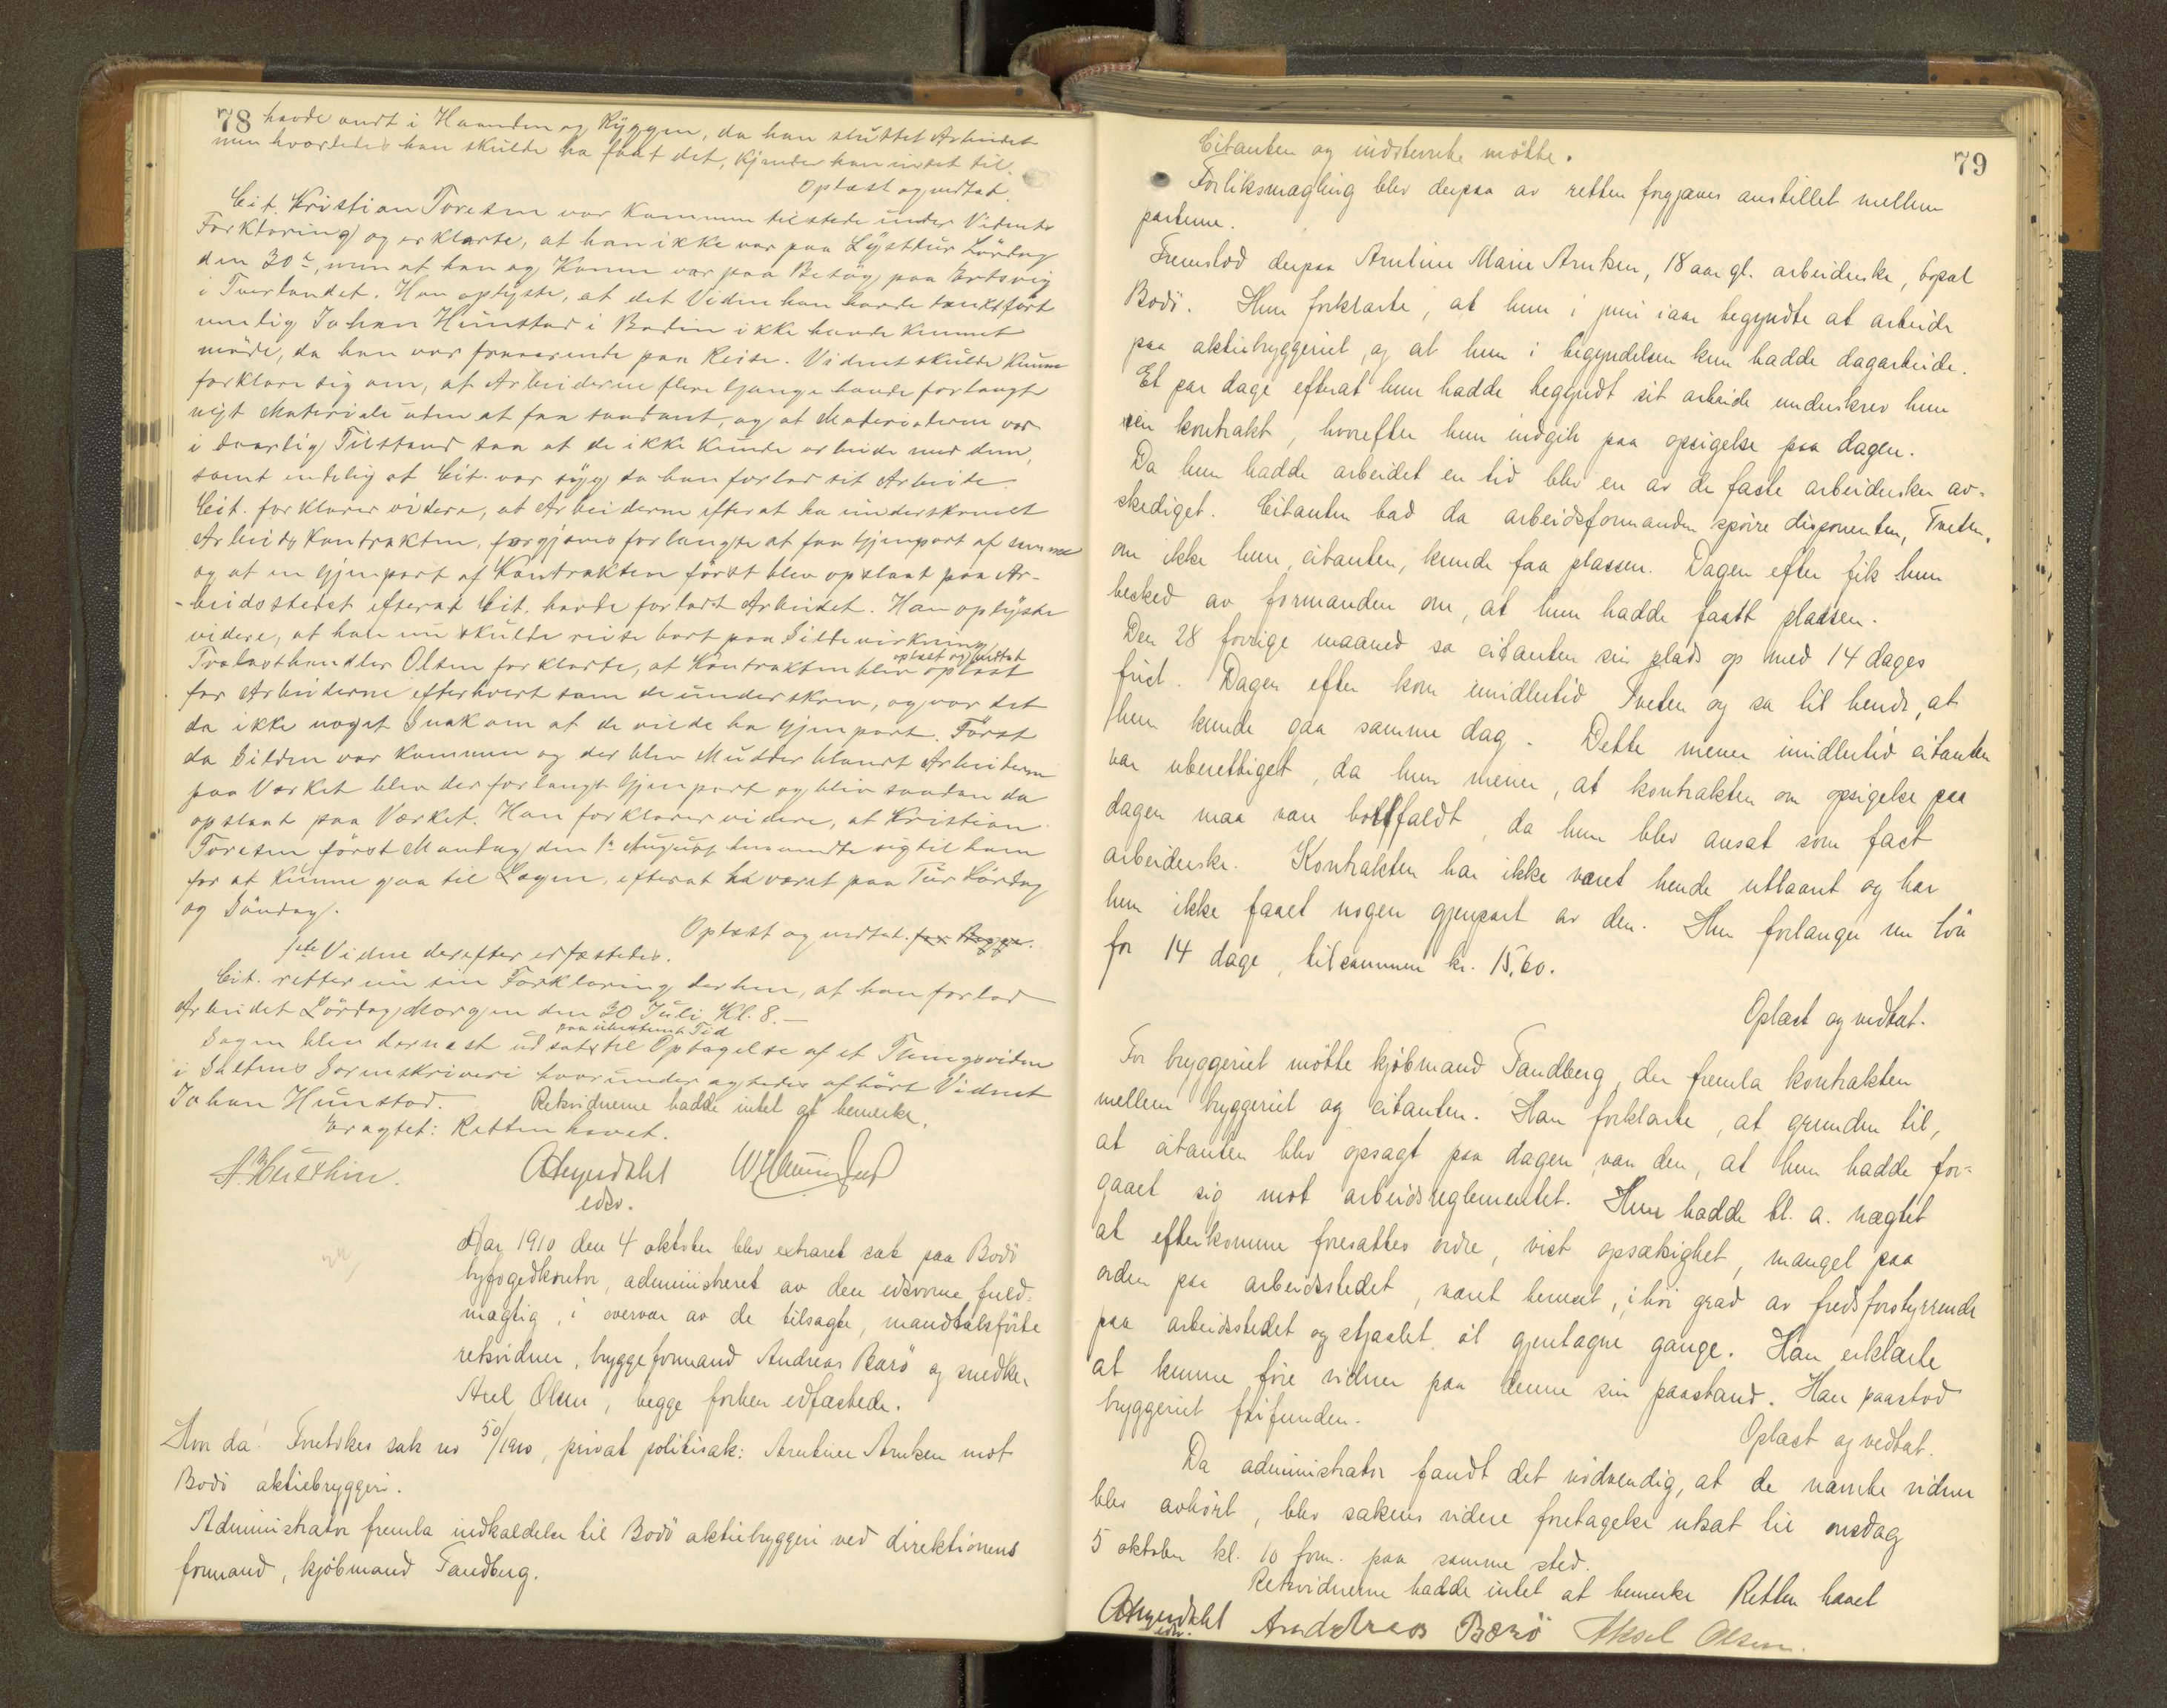 78 havde ondt i Haanden og Ryggen, da han sluttet Arbeidet
men hvorledes han skulde ha faat det, kjender han intet til.
Oplæst og vedtat.
Cit. Kristian Toresen var kommen tilstede under Vidnets
Forklaring og erklærte, at han ikke var paa Lysttur Lördag
den 30te, men at han og Konen var paa Besög paa
i Tverlandet. Han oplyste, at det Vidne han havde tænkt fört
nemlig Johan Hunstad i Bodin ikke havde kunnet
möde, da han var fraværende paa Reise. Vidnet skulde kunne
forklare sig om, at Arbeiderne flere Gange havde forlangt
nyt Materiale uten at faa saadant, og at Materialerne var
i daarlig Tilstand saa at de ikke kunde arbeide med dem,
samt endelig at Cit. var syg da han forlod sit Arbeide.
Cit. forklarer videre, at Arbeiderne efter at ha underskrevet
Arbeids Kontrakten, forgjæves forlangte at faa Gjenpart af samme
og at en Gjenpart af Kontrakten först blev opslaat paa Ar-
-beidsstedet efterat Cit. havde forladt Arbeidet. Han oplyste
videre, at han nu skulde reise bort paa Sildevirkning
oplæst og vedtat
Trælasthandler Olsen forklarte, at Kontrakten blev oplæst
for Arbeiderne efterhvert som de underskrev, og var det
da ikke noget Snak om at de vilde ha Gjenpart. Först
da Silden var kommen og der blev Mudder blandt Arbeiderne
paa Værket blev der forlangt Gjenpart og blev saadan da
opslaat paa Værket. Han forklarer videre, at Kristian
Toresen först Mandag den 1te August henvendte sig til ham
for at kunne gaa til Lægen, efterat ha været paa Tur Lördag
og Söndag.
Oplæst og vedtat.
1ste Vidne derefter edfæstedes.
Cit. retter nu sin Forklaring derhen, at han forlod
Arbeidet Lördag Morgen den 30 Juli Kl. 8.-
paa ubestemt Tid
Sagen blev dernæst udsat til Optagelse af et Tingsvidne
i Saltens Sorenskriveri hvorunder agtedes afhört Vidnet
Johan Hunstad. Retsvidnerne hadde intet at bemerke.
Eragtet: Retten hævet.
edsv.
Aar 1910 den 4 oktober blev extraret sat paa Bodö
byfogedkontor, administreret av den edsvorne fuld-
mægtig, i overvær av de tilsagte, mandtalsförte
retsvidner, bryggeformand Andreas Barö og snedker
Axel Olsen, begge forhen edfæstede.
Hvor da! Foretokes sak no 50/1910, privat politisak: Arntine Arntsen mot
Bodö aktiebryggeri.
Administrator fremla indkaldelse til Bodö aktiebryggeri ved direktionens
formand, kjöbmand Sandberg.
79
Citanten og indstevnte mötte.
Forliksmægling blev derpaa av retten forgjæves anstillet mellem
parterne.
Fremstod derpaa Arntine Marie Arntsen, 18 aar gl. arbeiderske, bopæl
Bodö. Hun forklarte, at hun i juni iaar begyndte at arbeide
paa aktiebryggeriet, og at hun i begyndelsen kun hadde dagarbeide.
Et par dage efterat hun hadde begyndt sit arbeide underskrev hun
en kontrakt, hvorefter hun indgik paa opsigelse paa dagen.
Da hun hadde arbeidet en tid blev en av de faste arbeidersker av-
skediget. Citanten bad da arbeidsformanden spörre disponenten, Tveten,
om ikke hun, citanten, kunde faa plassen. Dagen efter fik hun
besked av formanden om, at hun hadde faatt pladsen.
Den 28 forrige maaned sa citanten sin plads op med 14 dages
frist. Dagen efter kom imidlertid Tveten og sa til hende, at
hun kunde gaa samme dag. Dette mener imidlertid citanten
var uberettiget, da hun mener, at kontrakten om opsigelse paa
dagen maa være bortfaldt, da hun blev ansat som fast
arbeiderske. Kontrakten har ikke været hende utlaant og har
hun ikke faaet nogen gjenpart av den. Hun forlanger nu lön
for 14 dage, tilsammen kr. 15,60.
Oplæst og vedtat.
For bryggeriet mötte kjöbmand Sandberg, der fremla kontrakten
mellem bryggeriet og citanten. Han forklarte, at grunden til,
at citanten blev opsagt paa dagen var den, at hun hadde for-
gaaet sig mot arbeidsreglementet. Hun hadde bl. a. nægtet
at efterkomme foresattes ordre, vist opsætsighet, mangel paa
orden paa arbeidsstedet, været beruset, i höi grad av fredsforstyrrende
paa arbeidsstedet og stjaalet öl gjentagne gange. Han erklærte
at kunne före vidner paa denne sin paastand. Han paastod
bryggeriet frifunden.
Oplæst og vedtat.
Da administrator fandt det nödvendig, at de nævnte vidner
blev avhört, blev sakens videre foretagelse utsat til onsdag
5 oktober kl. 10 form. paa samme sted.
Retsvidnerne hadde intet at bemerke Retten hævet
edsv. Andreas Barö Aksel Olsen.